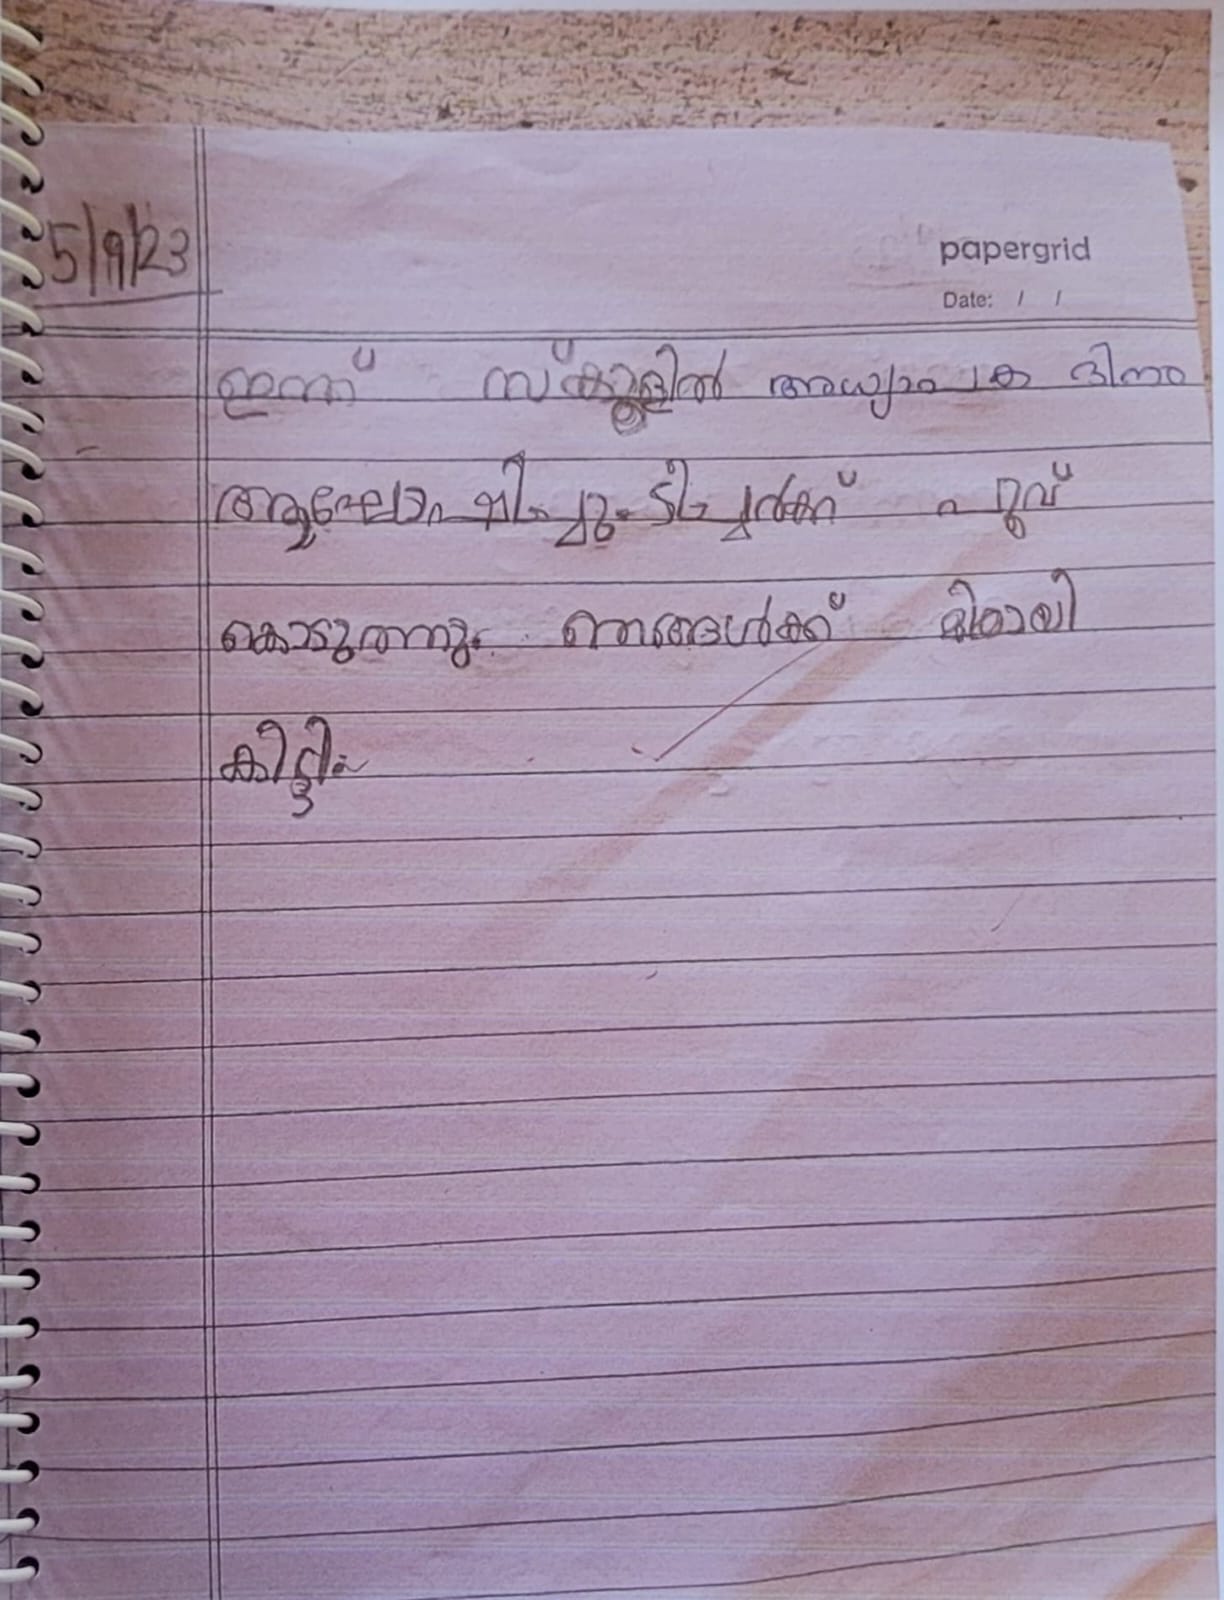 5/9/23
papergrid
Date: / /
ഇന്ന് സ്കൂളിൽ അധ്യാപക ദിനം
ആഘോഷിച്ചു. ടീച്ചർക്ക് പൂവ്
കൊടുത്തു. ഞങ്ങൾക്ക് മിഠായി
കിട്ടി.